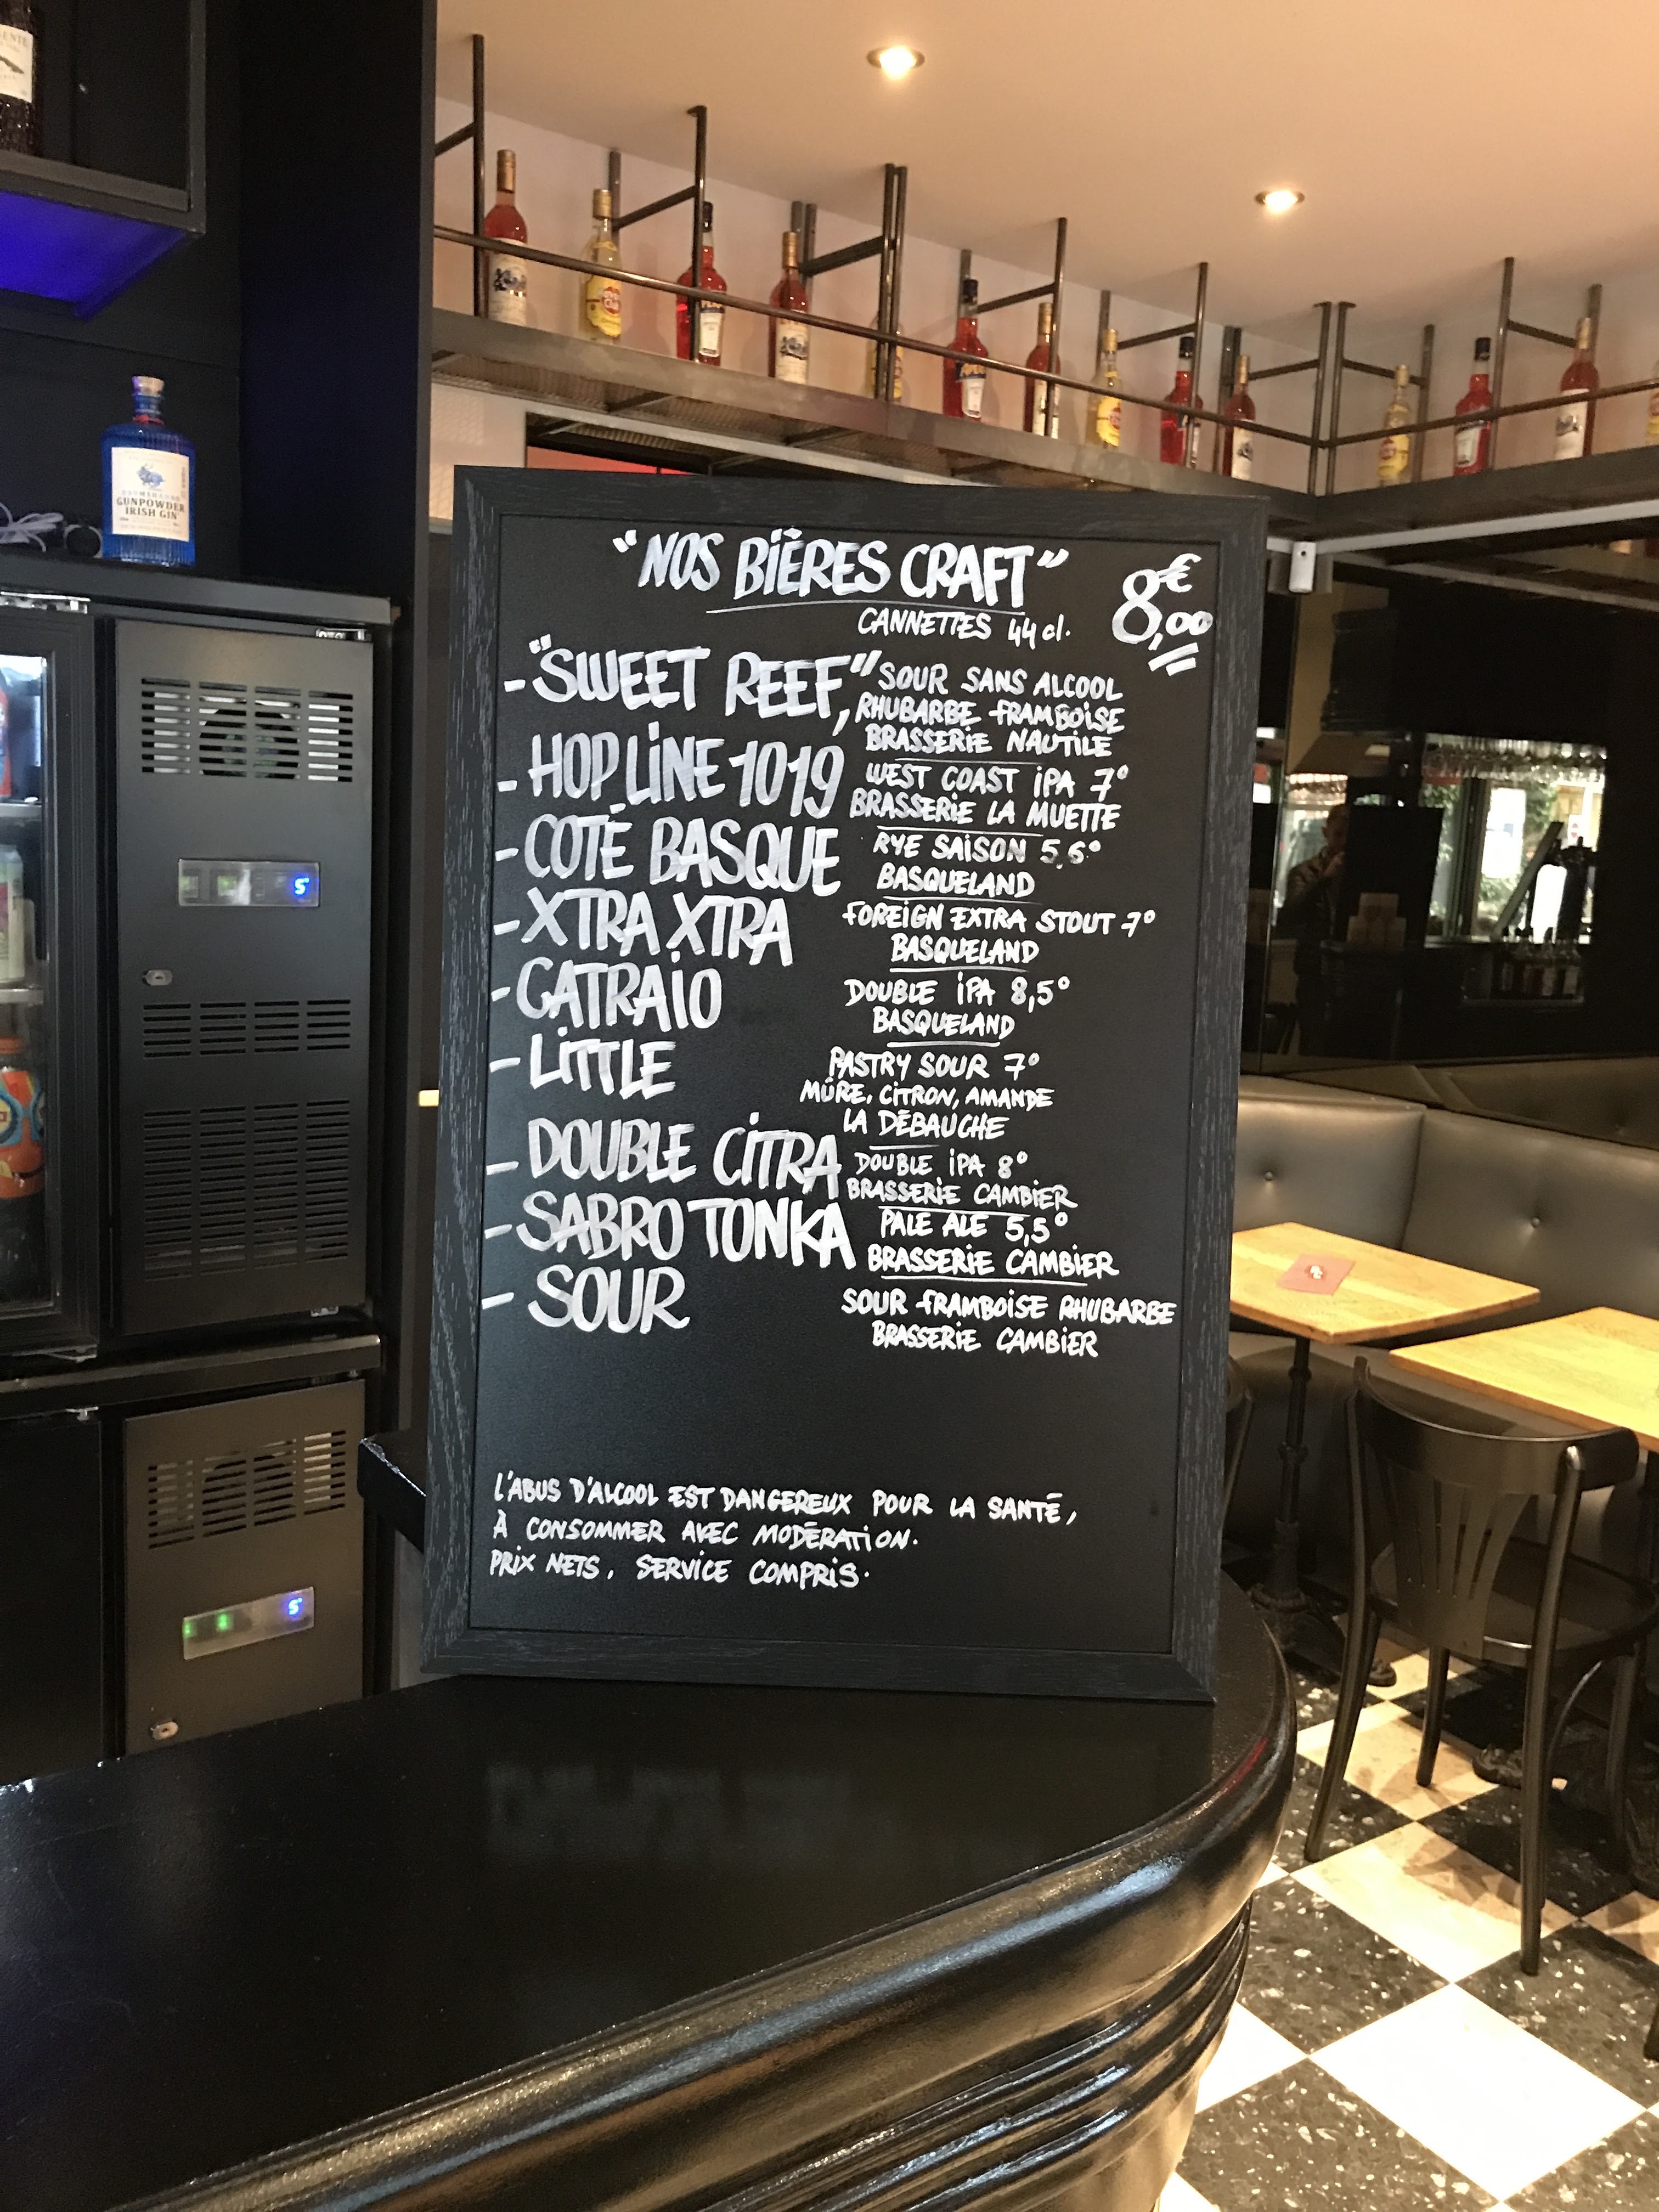 "NOS BIÈRES CRAFT" 8,00€
CANNETTES 44 cl.
- "SWEET REEF", SOUR SANS ALCOOL
RHUBARBE FRAMBOISE
BRASSERIE NAUTILE
- HOP LINE 1019 WEST COAST IPA 7°
BRASSERIE LA MUETTE
- COTÉ BASQUE RYE SAISON 5,6°
BASQUELAND
- XTRA XTRA FOREIGN EXTRA STOUT 7°
BASQUELAND
- CATRAIO DOUBLE IPA 8,5°
BASQUELAND
- LITTLE PASTRY SOUR 7°
MÛRE, CITRON, AMANDE
LA DÉBAUCHE
- DOUBLE CITRA DOUBLE IPA 8°
BRASSERIE CAMBIER
- SABRO TONKA PALE ALE 5,5°
BRASSERIE CAMBIER
- SOUR SOUR FRAMBOISE RHUBARBE
BRASSERIE CAMBIER
L'ABUS D'ALCOOL EST DANGEREUX POUR LA SANTÉ,
À CONSOMMER AVEC MODÉRATION.
PRIX NETS, SERVICE COMPRIS.
GUNPOWDER
IRISH GIN
5°
5°